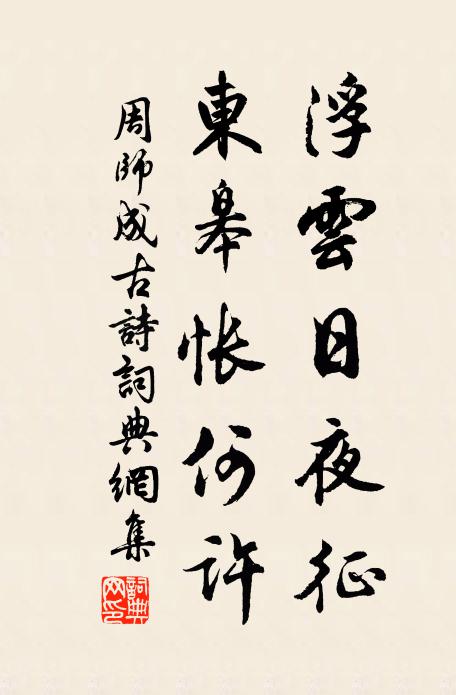 浮雲日夜征
東皋悵何許
周師成古詩詞典網集
詞典網印